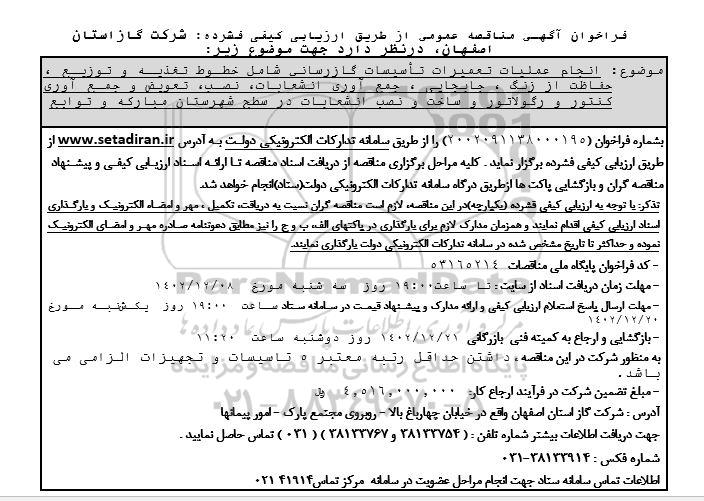 فراخوان آگهی مناقصه عمومی از طریق ارزیابی کیفی فشرده: شرکت گازاستان
اصفهان، درنظر دارد جهت موضوع زیر:
موضوع: انجام عملیات تعمیرات تأسیسات گازرسانی شامل خطوط تغذیه و توزیع ،
حفاظت از زنگ ، جابجایی ، جمع آوری انشعابات، نصب، تعویض و جمع آوری
کنتور و رگولاتور و ساخت و نصب انشعابات در سطح شهرستان مبارکه و توابع
بشماره فراخوان (۲۰۰۲۰۹۱۱۳۸۰۰۰۱۹۵) را از طریق سامانه تدارکات الکترونیکی دولت به آدرس www.setadiran.ir از
طریق ارزیابی کیفی فشرده برگزار نماید . کلیه مراحل برگزاری مناقصه از دریافت اسناد مناقصه تا ارائه اسناد ارزیابی کیفی و پیشنهاد
مناقصه گران و بازگشایی پاکت ها ازطریق درگاه سامانه تدارکات الکترونیکی دولت(ستاد)انجام خواهد شد.
تذکر: با توجه به ارزیابی کیفی فشرده (یکپارچه)در این مناقصه، لازم است مناقصه گران نسبت به دریافت، تکمیل ، مهر و امضاء الکترونیک و بارگذاری
اسناد ارزیابی کیفی اقدام نمایند و همزمان مدارک لازم برای بارگذاری در پاکتهای الف، ب و ج را نیز مطابق دعوتنامه صادره مهر و امضای الکترونیک
نموده و حداکثر تا تاریخ مشخص شده در سامانه تدارکات الکترونیکی دولت بارگذاری نمایند.
- کد فراخوان پایگاه ملی مناقصات ۵۳۱۶۵۲۱۴
- مهلت زمان دریافت اسناد از سایت: تا ساعت۱۹:۰۰ روز سه شنبه مورخ ۱۴۰۲/۱۲/۰۸
- مهلت ارسال پاسخ استعلام ارزیابی کیفی و ارائه مدارک و پیشنهاد قیمت در سامانه ستاد ساعت ۱۹:۰۰ روز یکشنبه مورخ
۱۴۰۲/۱۲/۲۰
- بازگشایی و ارجاع به کمیته فنی بازرگانی ۱۴۰۲/۱۲/۲۱ روز دوشنبه ساعت ۱۱:۲۰
به منظور شرکت در این مناقصه ، داشتن حداقل رتبه معتبر ۵ تاسیسات و تجهیزات الزامی می
باشد .
- مبلغ تضمین شرکت در فرآیند ارجاع کار: ۴,۵۱۶,۰۰۰,۰۰۰ ریال
آدرس : شرکت گاز استان اصفهان واقع در خیابان چهارباغ بالا - روبروی مجتمع پارک - امور پیمانها
جهت دریافت اطلاعات بیشتر شماره تلفن : ( ۳۸۱۳۳۷۵۴ و ۳۸۱۳۳۷۶۷ ) ( ۰۳۱ ) تماس حاصل نمایید .
شماره فکس : ۳۸۱۳۳۹۱۴-۰۳۱
اطلاعات تماس سامانه ستاد جهت انجام مراحل عضویت در سامانه مرکز تماس۴۱۹۱۴ ۰۲۱